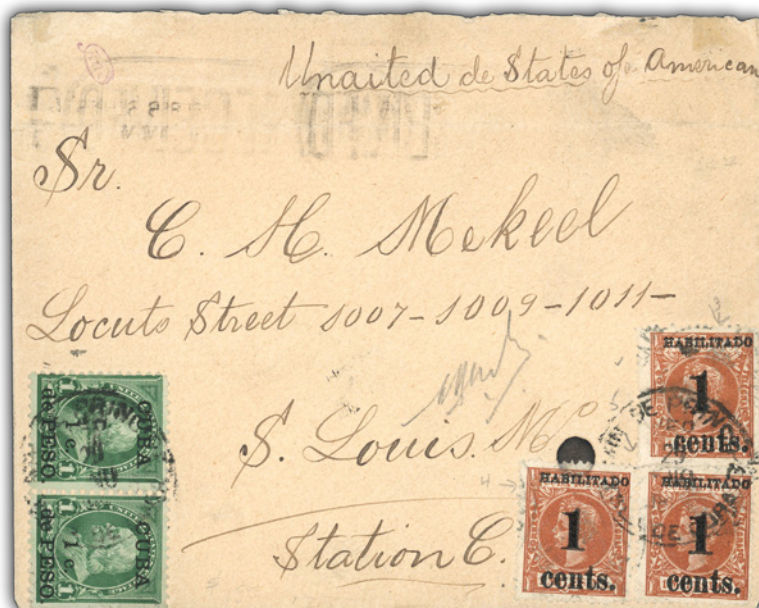 Unaited de States of American
Sr.
C. H. Mekeel
Locuts Street 1007-1009-1011-
S. Louis. Mº
Station C.
CUBA
1 c.
de PESO.
1
1
CUBA
1 c.
de PESO.
1
1
HABILITADO
1
cents.
HABILITADO
1
cents.
HABILITADO
1
cents.